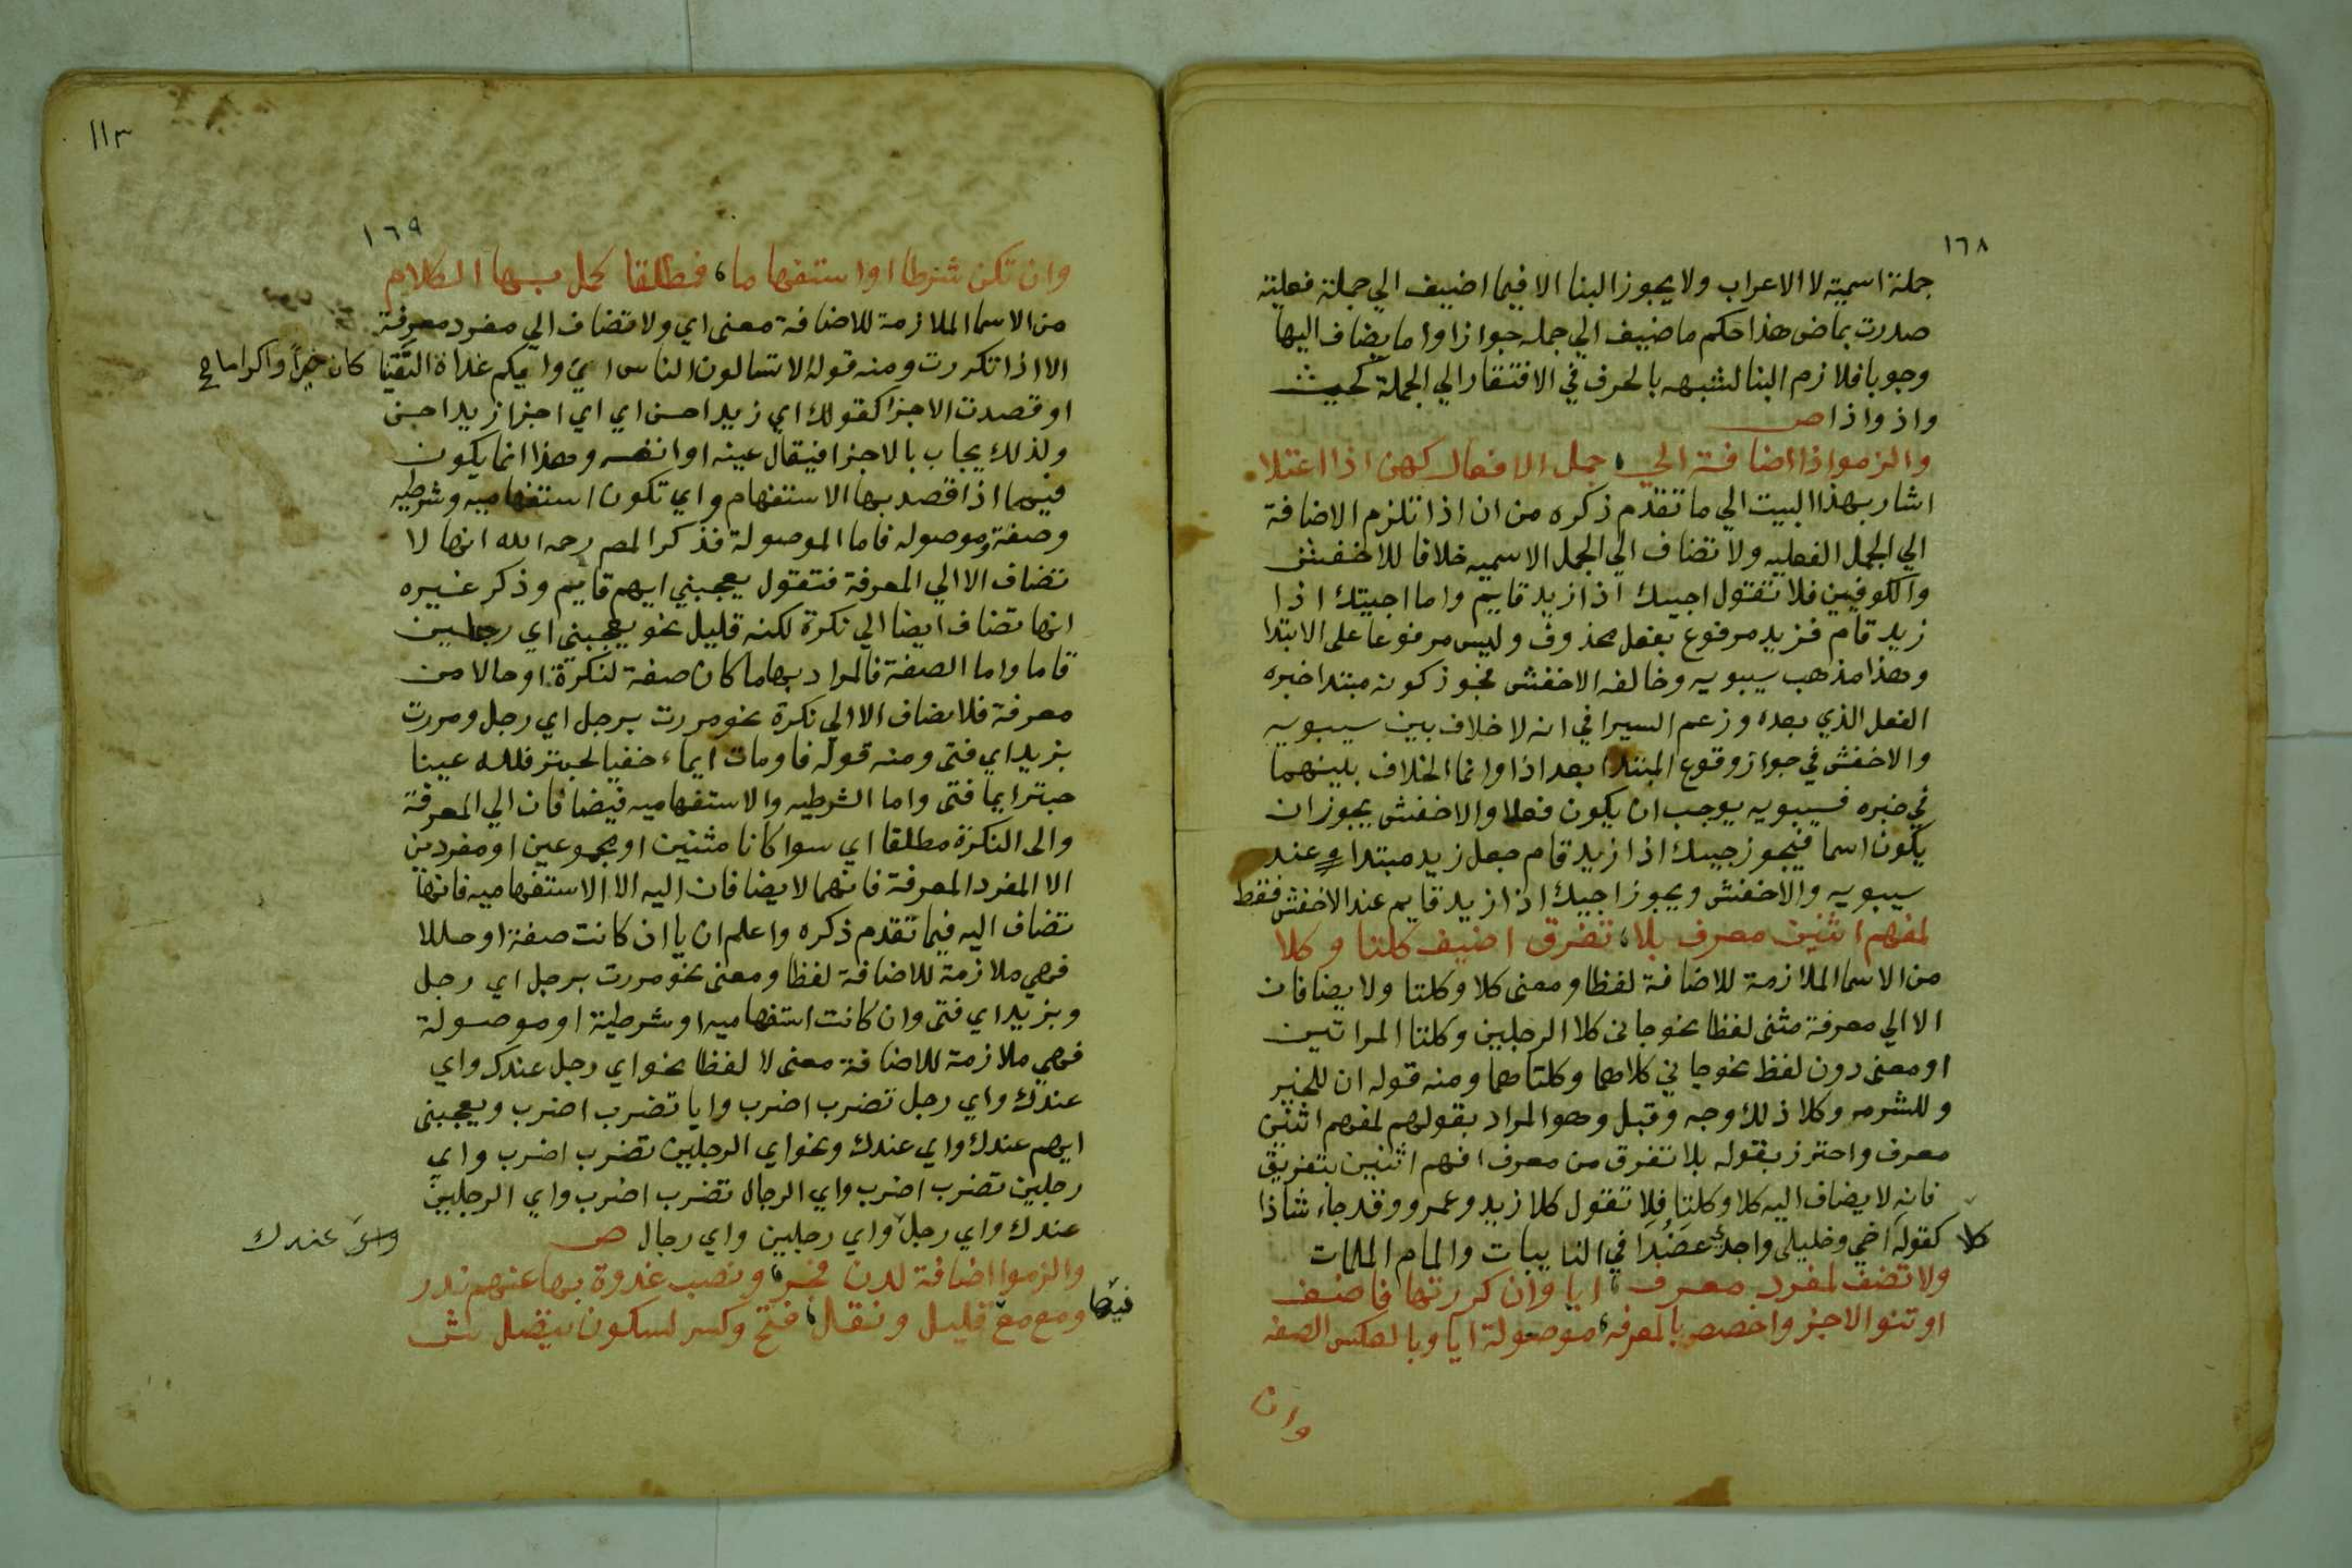 ١٦٨
جملة اسمية لا الاعراب ولا يجوز البنا الا فيما اضيف الي جملة فعلية
صدرت بماض هذا حكم ما ضيف الي جمله جوازا واما يضاف اليها
وجوبا فلازم البنا لشبهه بالحرف في الافتقار الي الجملة كحيث
واذ واذا ص
والزموا اذا اضافة الي ، جمل الافعال كهن اذا اعتلا
اشار بهذا البيت الي ما تقدم ذكره من ان اذا تلزم الاضافة
الي الجمل الفعليه ولا تضاف الي الجمل الاسميه خلافا للاخفش
والكوفيين فلا تقول اجيىك اذا زيد قايم واما اجيتك اذا
زيد قام فزيد مرفوع بفعل محذوف وليس مرفوعا على الابتدا
وهذا مذهب سيبويه وخالفه الاخفش فجوز كونه مبتدا خبره
الفعل الذي بعده وزعم السيرافي انه لا خلاف بين سيبويه
والاخفش في جواز وقوع المبتدا بعد اذا وانما الخلاف بينهما
في خبره فسيبويه يوجب ان يكون فعلا والاخفش يجوز ان
يكون اسما فيجوز جيىك اذا زيد قام جعل زيد مبتدا عند
سيبويه والاخفش ويجوز اجيىك اذا زيد قايم عند الاخفش فقط
لمفهم اثنين معرف بلا ، تفرق اضيف كلتا وكلا
من الاسما الملازمة للاضافة لفظا ومعنى كلا وكلتا ولا يضافان
الا الي معرفة مثنى لفظا نحو جانى كلا الرجلين وكلتا المراتين
او معنى دون لفظ نحو جاني كلاهما وكلتاهما ومنه قوله ان للخير
وللشر مر وكلا ذلك وجه وقبل وهو المراد بقولهم لمفهم اثنين
معرف واحترز بقوله بلا تفرق من معرف افهم اثنين بتفريق
فانه لا يضاف اليه كلا وكلتا فلا تقول كلا زيد وعمرو وقد جاء شاذا
كلا
كقوله اخي وخليلى واجدى عضدا في النايبات والمام الملمات
ولا تضف لمفرد معرف ، ايا وان كررتها فاضف
او تنو الاجزا واخصص بالمعرفه ، موصولة ايا وبالعكس الصفه
وان
١١٣
١٦٩
وان تكن شرطا او استفهاما ، فمطلقا كمل بها الكلام
من الاسما الملازمة للاضافة معنى اي ولا تضاف الي مفرد معرفة
الا اذا تكررت ومنه قوله الا تسالون الناس ايى وايكم غداة التقينا كان خيرا واكراما ج
او قصدت الاجزا كقولك اي زيد احسن اي اي اجزا زيد احسن
ولذلك يجاب بالاجزا فيقال عينه او انفسه وهذا انما يكون
فيهما اذا قصد بها الاستفهام واي تكون استفهاميه وشرطيه
وصفة وموصوله فاما الموصولة فذكر المص رحمه الله انها لا
تضاف الا الي المعرفة فتقول يعجبني ايهم قايم وذكر غيره
انها تضاف ايضا الي نكرة لكنه قليل نحو يعجبنى اي رجلين
قاما واما الصفة فالمراد بها ما كان صفة لنكرة او حالا من
معرفة فلا يضاف الا الي نكرة نحو مررت برجل اي رجل ومررت
بزيد اي فتى ومنه قوله فاومات ايماء خفيا لحبتر فلله عينا
حبتر ايما فتى واما الشرطيه والاستفهاميه فيضافان الي المعرفة
والى النكرة مطلقا اي سوا كانا مثنين او مجموعين او مفردين
الا المفرد المعرفة فانهما لا يضافان اليه الا الاستفهاميه فانها
تضاف اليه فيما تقدم ذكره واعلم ان يا ان كانت صفة او حالا
فهي ملازمة للاضافة لفظا ومعنى نحو مررت برجل اي رجل
وبزيد اي فتى وان كانت استفهاميه او شرطية او موصولة
فهي ملازمة للاضافة معنى لا لفظا نحو اي رجل عندك واي
عندك واي رجل تضرب اضرب وايا تضرب اضرب ويعجبنى
ايهم عندك واي عندك ونحو اي الرجلين تضرب اضرب واي
رجلين تضرب اضرب واي الرجال تضرب اضرب واي الرجلين
عندك واي رجل واي رجلين واي رجال ص
عندك
والزموا اضافة لدن فجر ، ونصب غدوة بها عنهم ندر
ومع مع فيها قليل ونقل ، فتح وكسر لسكون يتصل ش